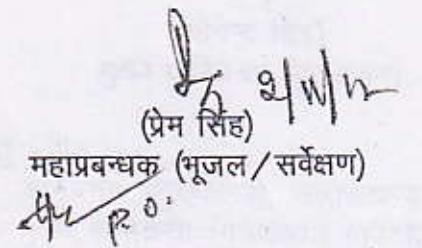 (प्रेम सिंह)
महाप्रबन्धक (भूजल/सर्वेक्षण)
P.O.